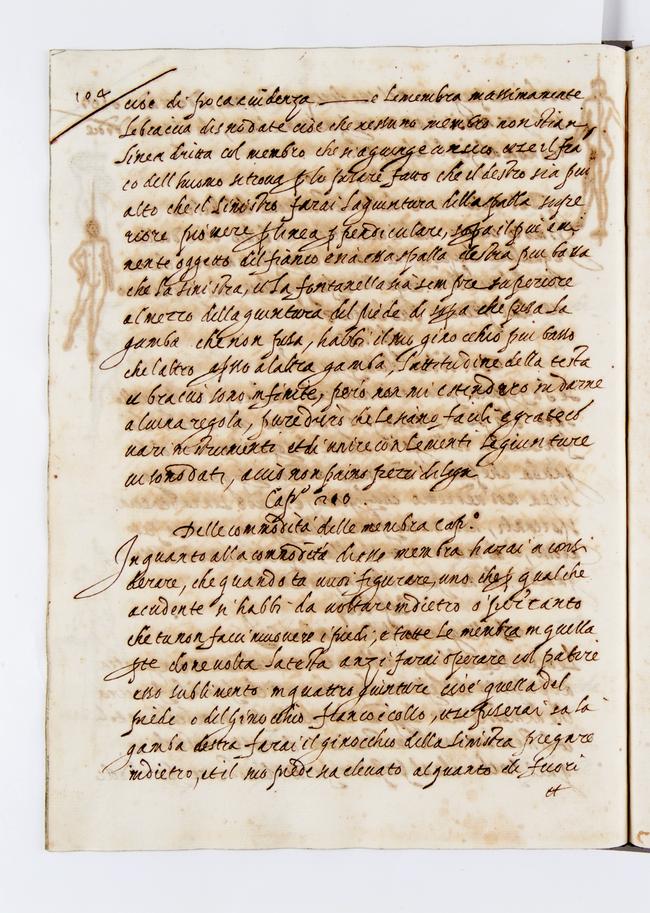 104
cioè di poca euidenza — e le membra massimamente
le braccia disnodate cioe che nessuno membro non stian
linea dritta col membro che si agiunge con seco et se il fian
co dell huomo si troua p lo posare fatto che il destro sia piu
alto che il sinistro farai la giuntura della spalla supe
riore piouere p linea ppendiculare, sopa il piu emi
nente oggetto del fianco e sia essa spalla destra piu bassa
che la sinistra, et la fontanella sia sempre superiore
al mezzo della giuntura del piede di sopa che posa la
gamba che non posa, habbi il suo ginocchio piu basso
che l altro apsso al altra gamba, l attitudine della testa
et braccia sono infinite, però non mi estenderò in darne
alcuna regola, pure dirò che le siano facili e grate co
uari et di unire con le menti le giunture
ui sono dati, acciò non paino pezzi di legn
Cap.º 210.
Delle commodità delle membra Cap.º
In quanto alla commodità di esse membra harai a consi
derare, che quando tu vuoi figurare, uno che p qualche
accidente si habbi da uoltare indietro o p canto
che tu non facci muouere i piedi, e tutte le membra in quella
pte doue volta la testa anzi farai operare col partire
esso in quattro giunture cioè quella del
piede o del ginocchio fianco e collo, et se poserai su la
gamba destra farai il ginocchio della sinistra piegare
indietro, et il suo piede sia eleuato alquanto di fuori
et